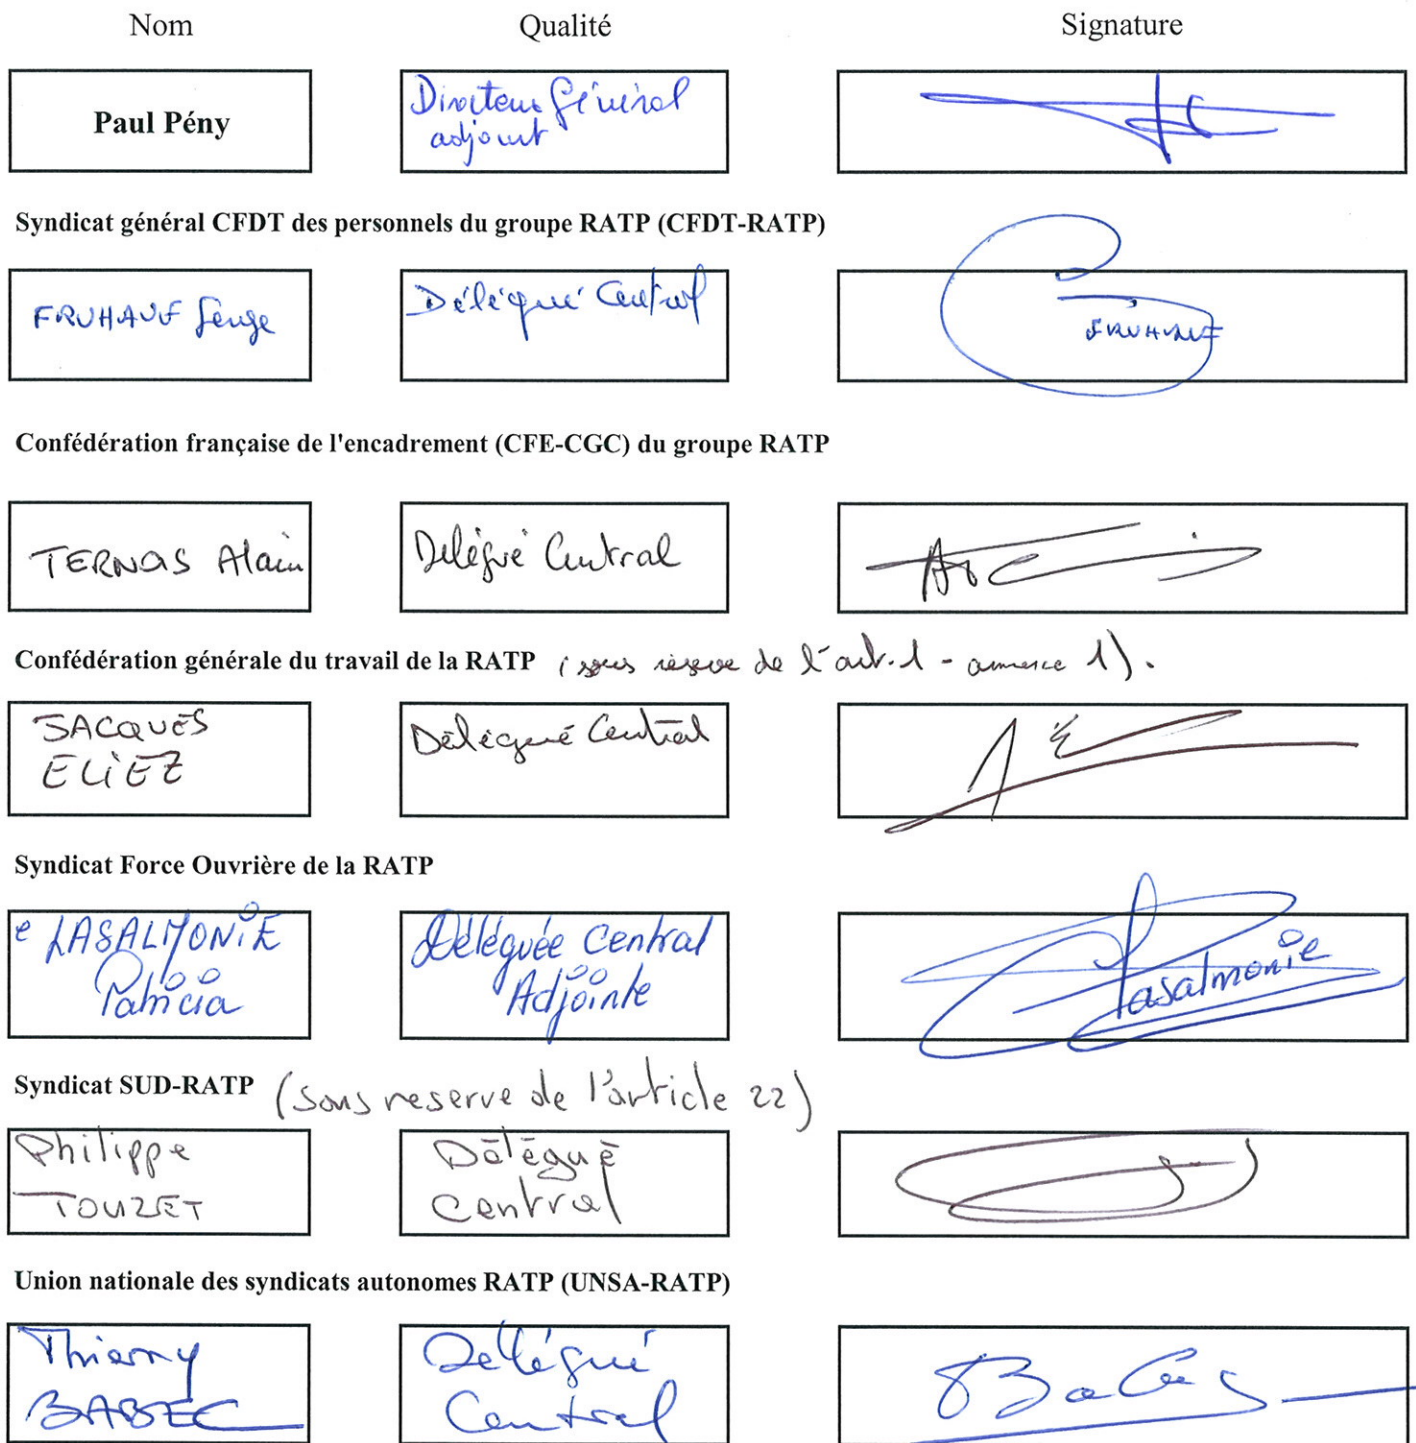 Nom Qualité Signature
Paul Pény
Directeur Général
adjoint
Syndicat général CFDT des personnels du groupe RATP (CFDT-RATP)
FRUHAUF Serge
Délégué Central
FRUHAUF
Confédération française de l'encadrement (CFE-CGC) du groupe RATP
TERNOIS Alain
Délégué Central
Confédération générale du travail de la RATP (sous réserve de l'art.1 - annexe 1).
JACQUES
ELIEZ
Délégué Central
Syndicat Force Ouvrière de la RATP
LASALMONIE
Patricia
Déléguée Central
Adjointe
Lasalmonie
Syndicat SUD-RATP (sous reserve de l'article 22)
Philippe
TOUZET
Délégué
Central
Union nationale des syndicats autonomes RATP (UNSA-RATP)
Thierry
BABEC
Délégué
Central